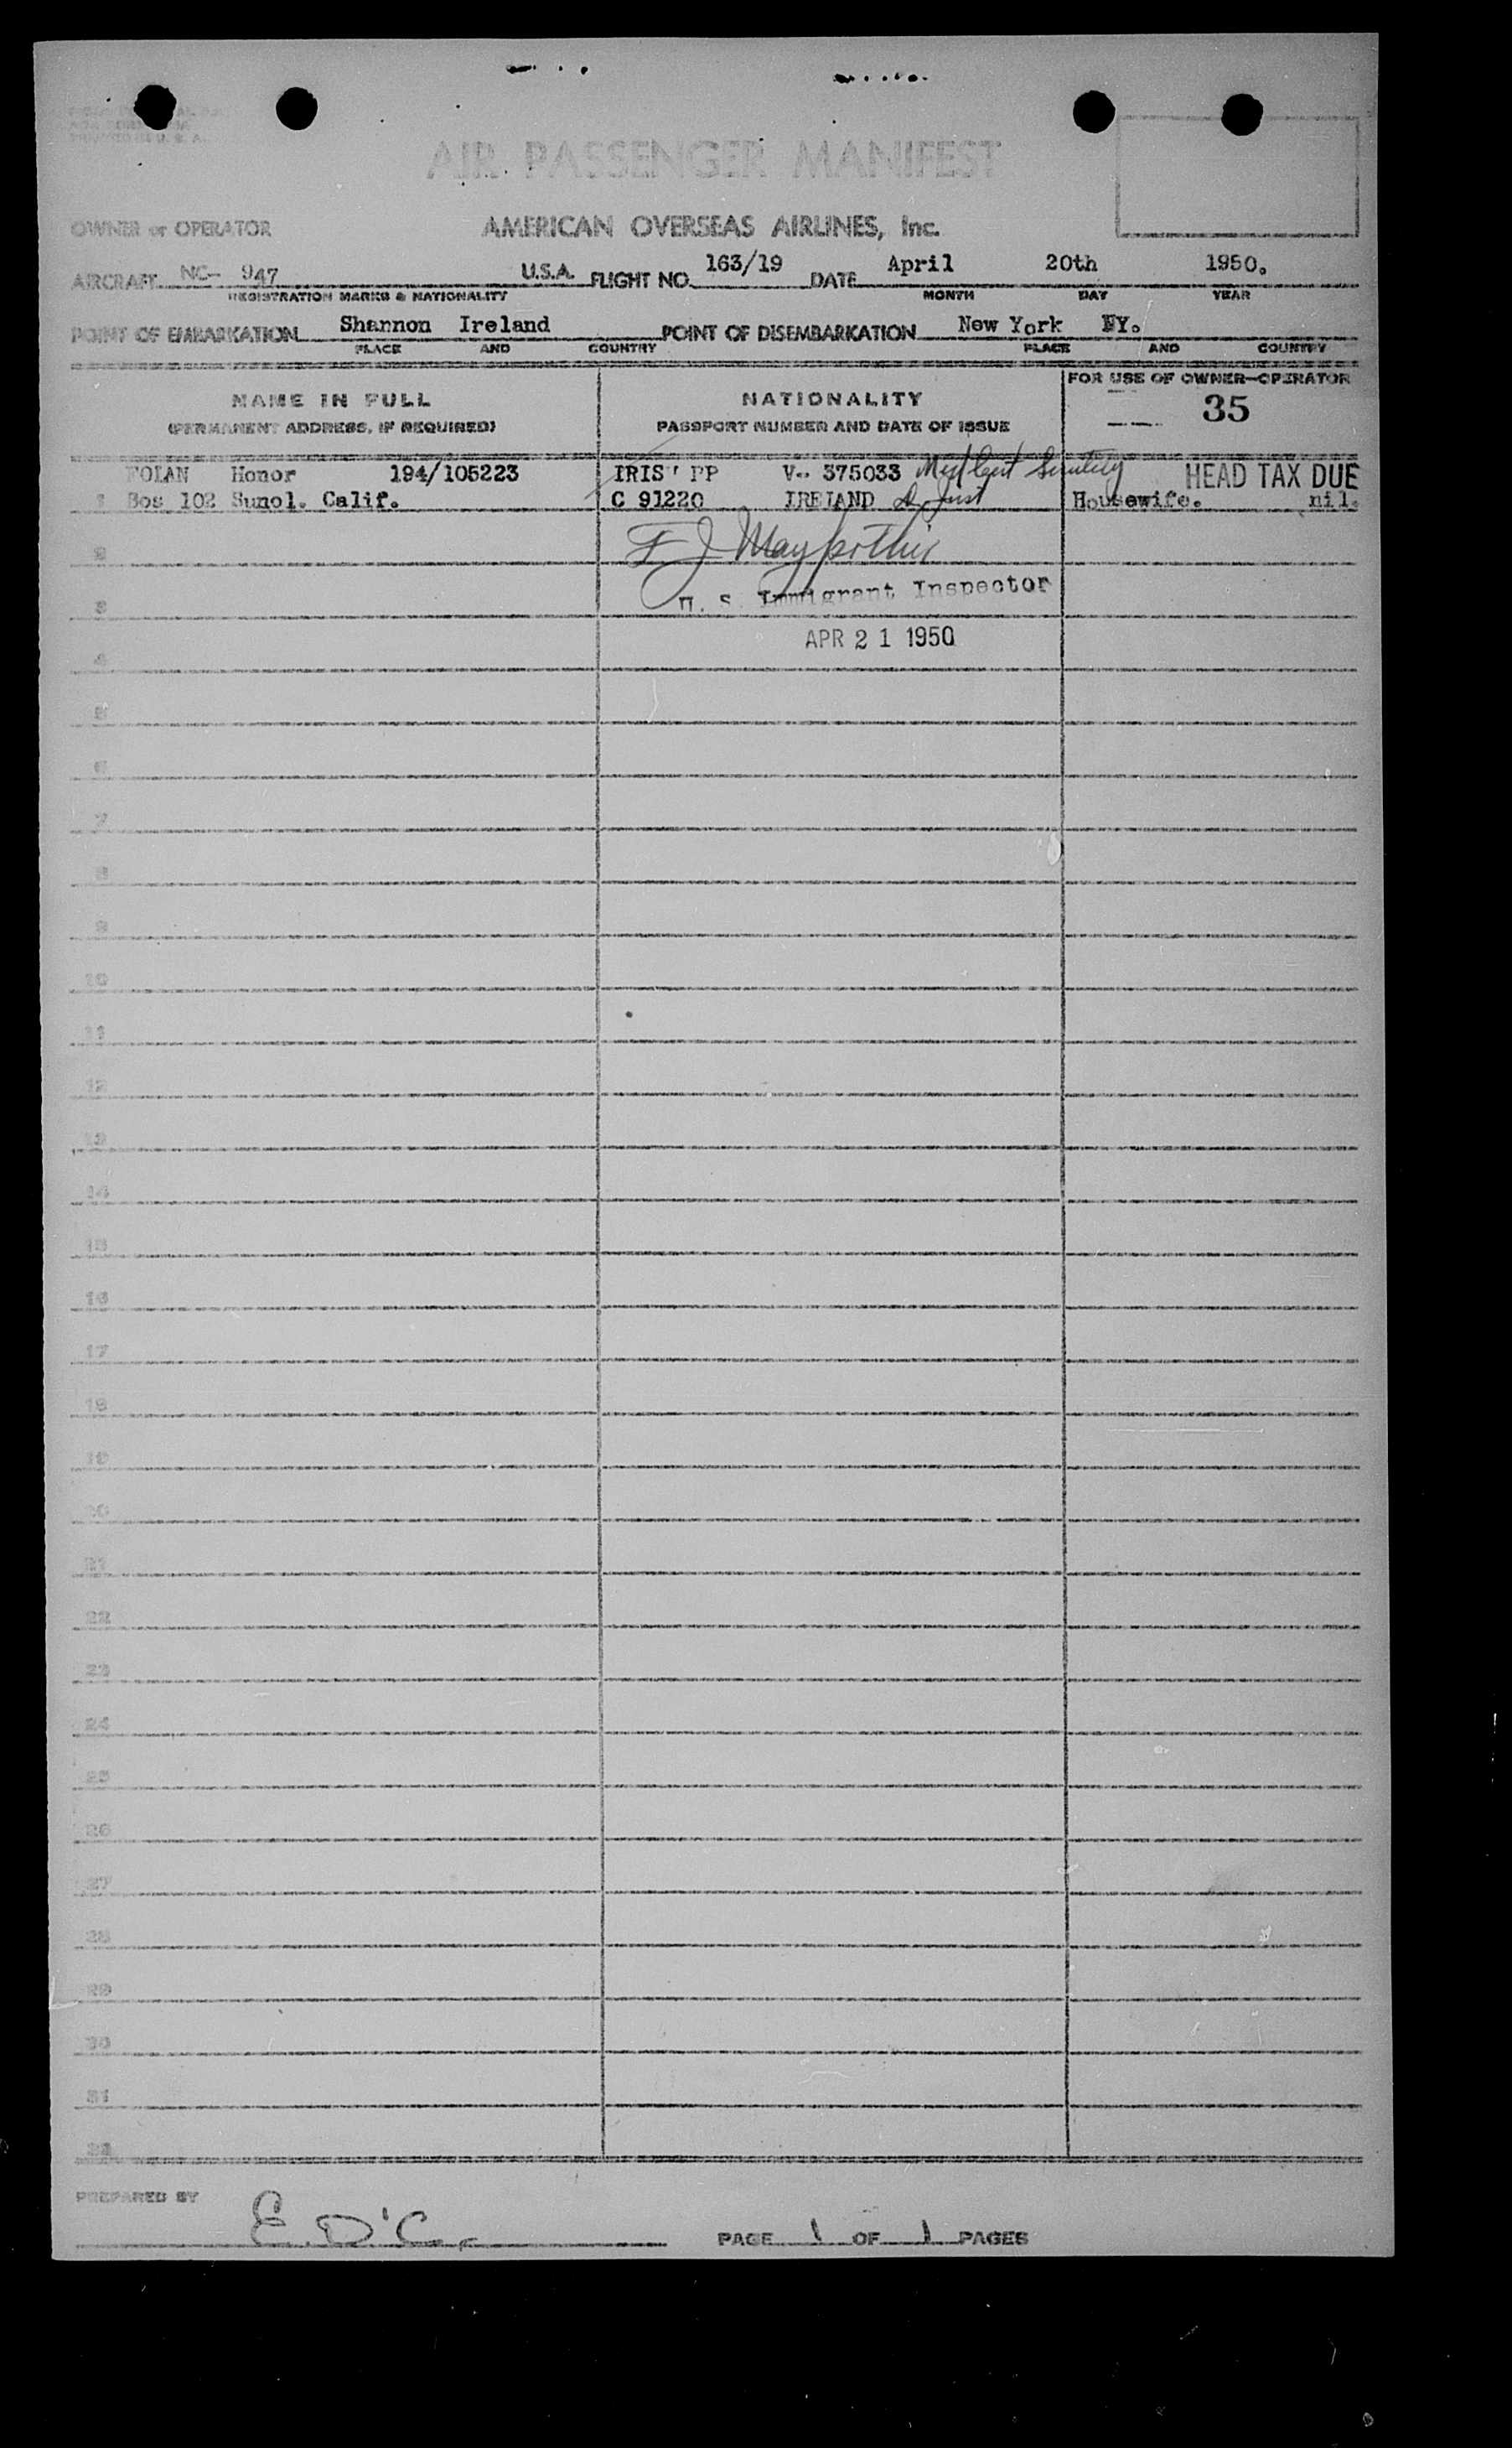 PRINTED IN U. S. A.
AIR PASSENGER MANIFEST
OWNER or OPERATOR AMERICAN OVERSEAS AIRLINES, Inc.
AIRCRAFT NC- 947 U.S.A. FLIGHT NO. 163/19 DATE April 20th 1950.
REGISTRATION MARKS & NATIONALITY MONTH DAY YEAR
POINT OF EMBARKATION Shannon Ireland POINT OF DISEMBARKATION New York NY.
PLACE AND COUNTRY PLACE AND COUNTRY
NAME IN FULL NATIONALITY FOR USE OF OWNER-OPERATOR
(PERMANENT ADDRESS, IF REQUIRED) PASSPORT NUMBER AND DATE OF ISSUE 35
FOLAN Honor 194/105223 IRISH PP V-- 375033 Med Cert HEAD TAX DUE
1 Box 102 Sunol. Calif. C 91220 IRELAND Housewife. nil.
2 F J
3 U. S. Immigrant Inspector
4 APR 21 1950
5
6
7
8
9
10
11
12
13
14
15
16
17
18
19
20
21
22
23
24
25
26
27
28
29
30
31
32
PREPARED BY E. D'C. PAGE 1 OF 1 PAGES